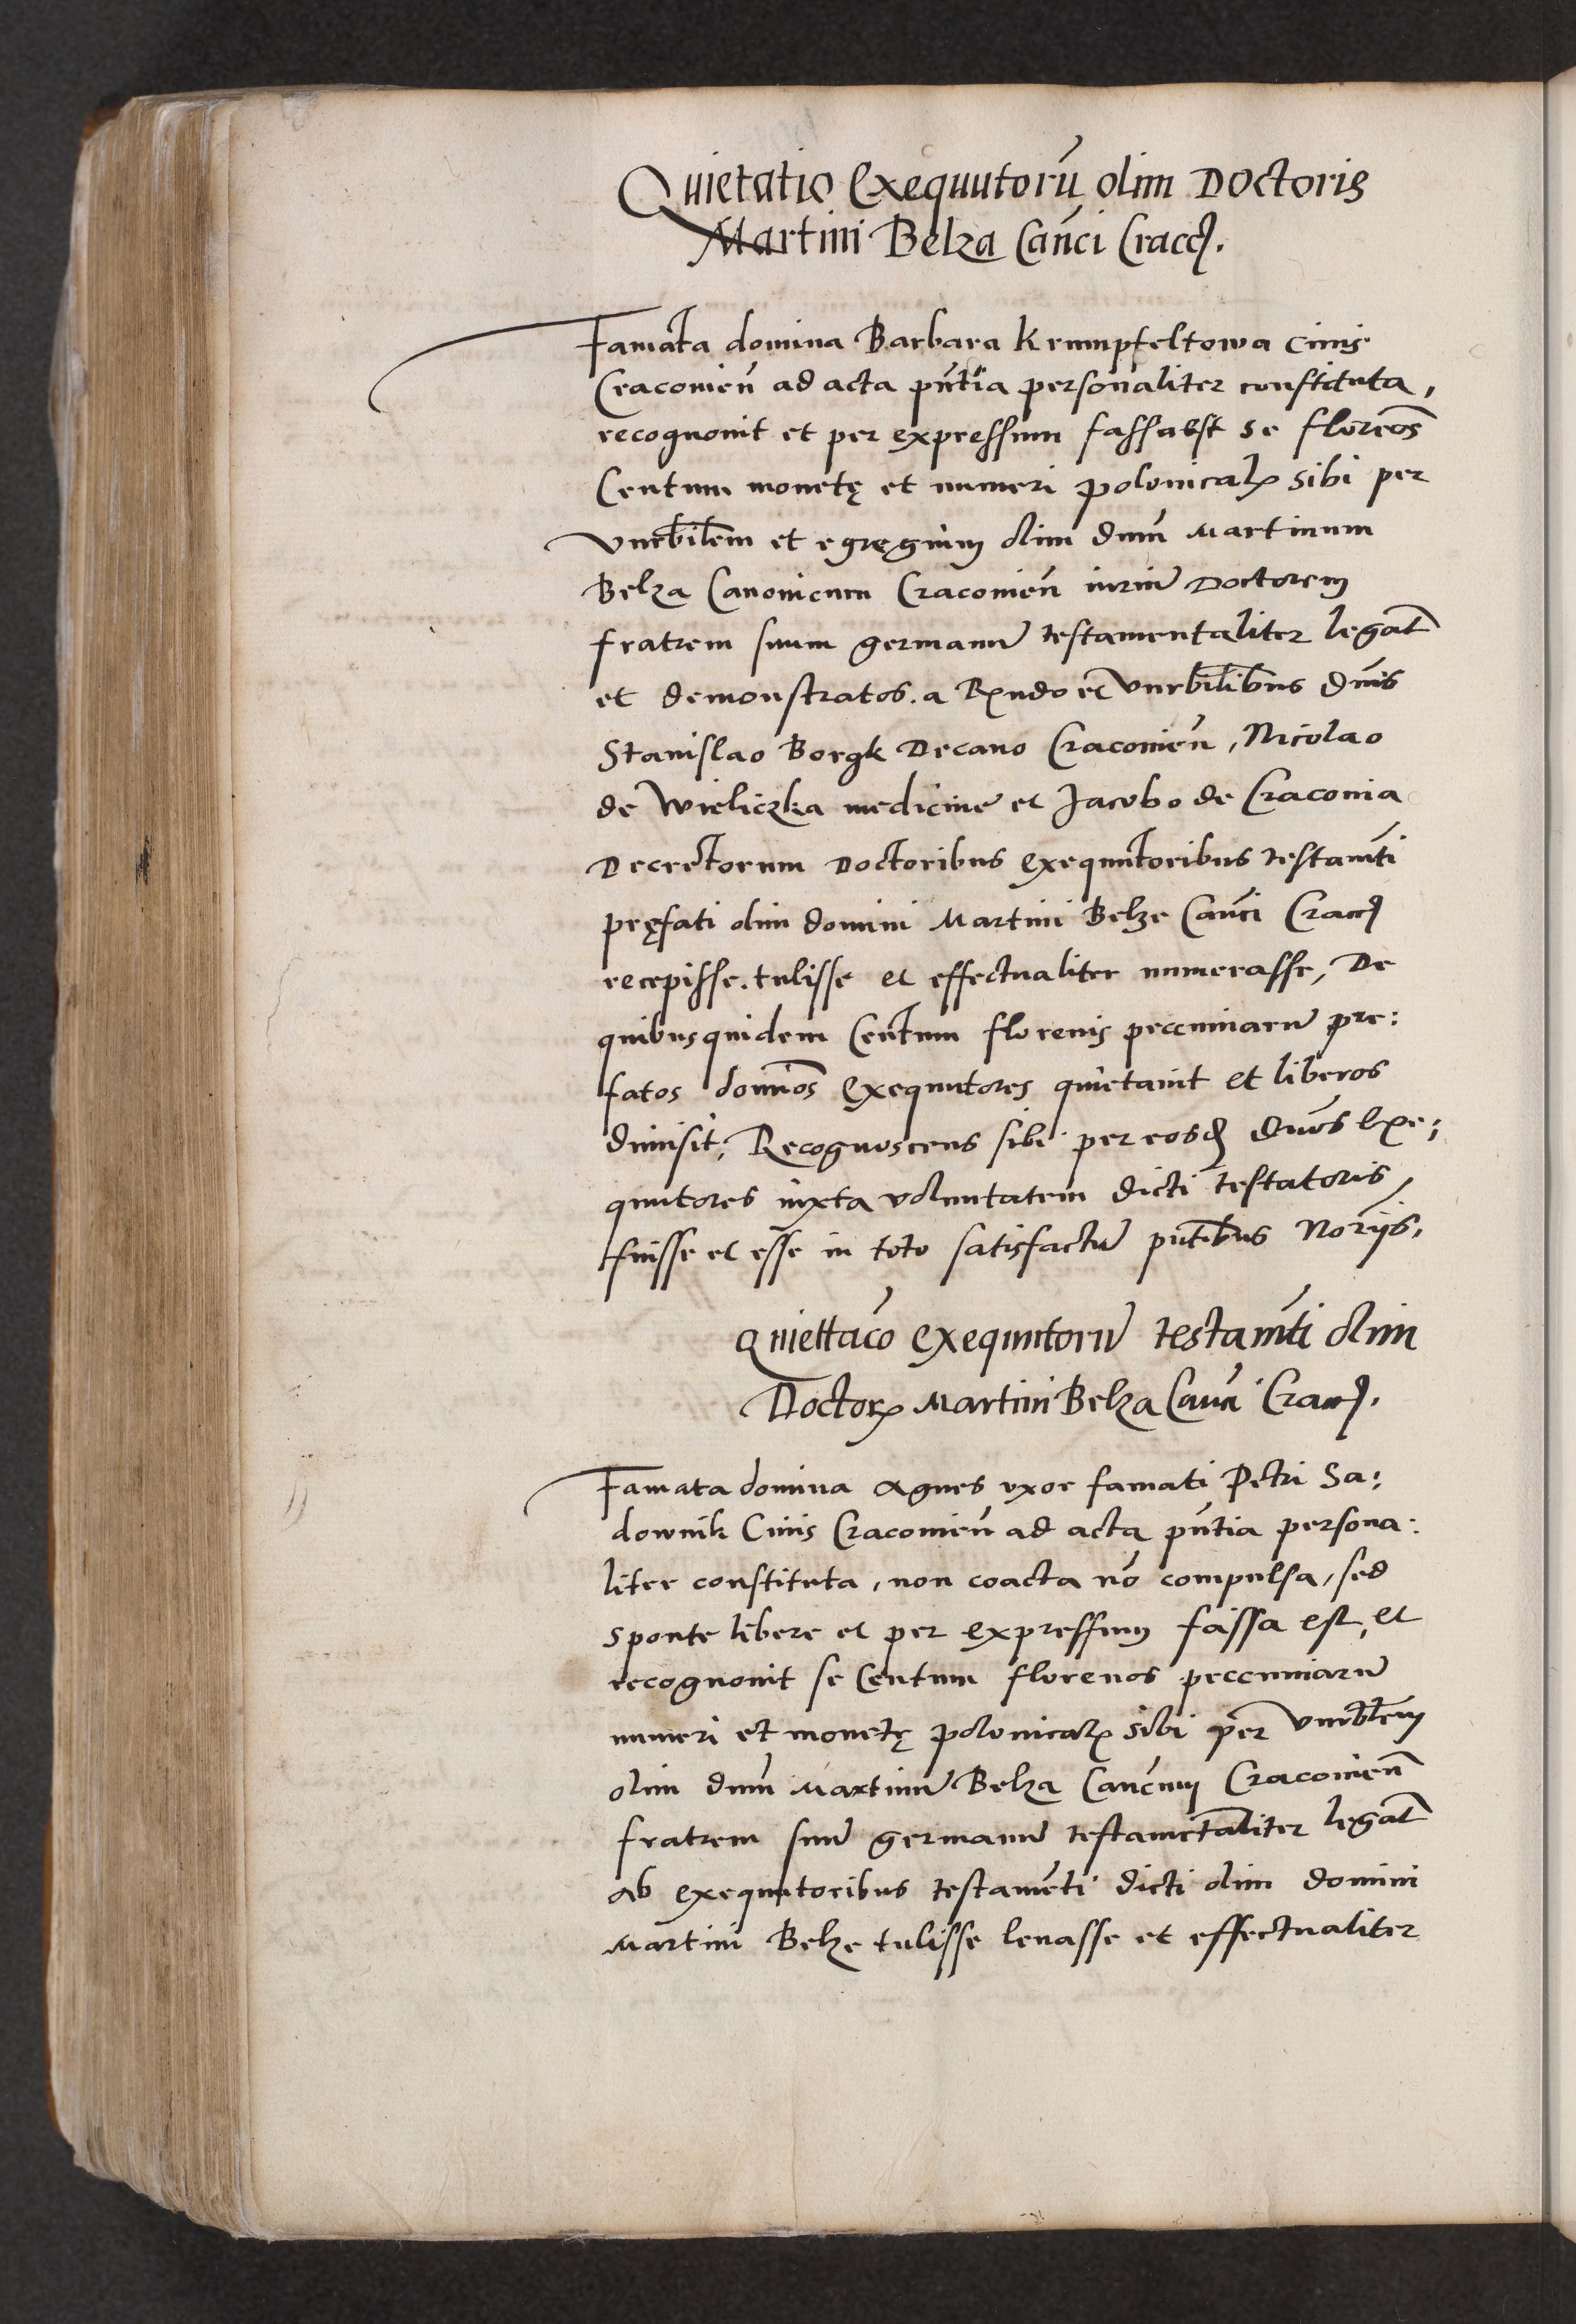 Quietatio Exequutorū olim Doctoris
Martini Belza Cañci Cracē.
Famata domina Barbara Krumpfeltowa Ciuis
Cracouieñ ad acta pñtia personaliter constituta,
recognouit et per expressum fassa est se floreōs
Centum monetę et numeri polonicalꝭ sibi per
vnerbilem et egregium olim dnm̄ Martinum
Belza Canonicum Cracouieñ iuriū Doctorem
fratrem suum germanū testamentaliter legat̄
et demonstratos. a Rndo et vnerbilibus dnis
Stanislao Borgk Decano Cracouieñ, Nicolao
de Wieliczka medicine et Jacobo de Cracouia
Decretorum Doctoribus exequutoribus testamti
pręfati olim domini Martini Belze Cañci Cracē
recepisse. tulisse et effectualiter numerasse, De
quibusquidem Centum florenis peccuniarū pre:
fatos domiōs exequutores quietauit et liberos
dimisit, Recognoscens sibi per eosd dnōs Exe:
quutores iuxta voluntatem dicti testatoris,
fuisse et esse in toto satisfactū pñtibus Norijs.
Quiettaċo exequutorū testamti olim
Doctorꝭ Martini Belza Cañci Cracē.
Famata domina Agnes vxor famati Petri Sa:
downik Ciuis Cracouieñ ad acta pñtia persona:
liter constituta, non coacta nō compulsa, sed
sponte libere et per expressum fassa est, et
recognouit se Centum florenos peccuniarū
numeri et monetę polonicalꝭ sibi per vnerblem
olim dnm̄ Martinū Belza Cañcum Cracouieñ
fratrem suū germanū testamētaliter legat̄
ab exequutoribus testamēti dicti olim domini
Martini Belze tulisse leuasse et effectualiter